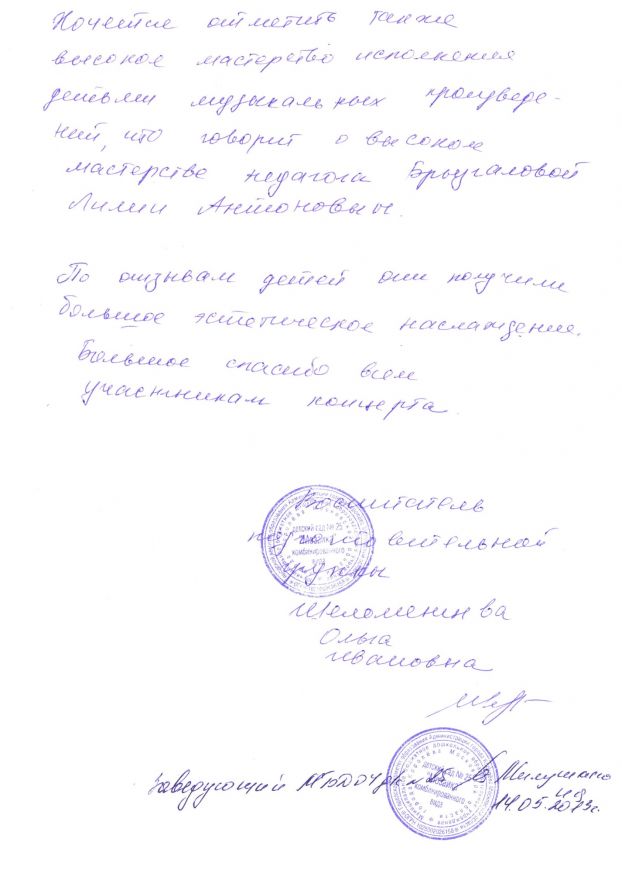 Хочется отметить также
высокое мастерство исполнения
детьми музыкальных произведе-
ний, что говорит о высоком
мастерстве педагога
Лилии Антоновны.
По отзывам детей они получили
большое эстетическое наслаждение.
Большое спасибо всем
участникам концерта.
Воспитатель
подготовительной
группы
Ольга
Ивановна
детский сад № 25
комбинированного
вида
Заведующий
детский сад № 25
комбинированного
вида
14.05.2013г.